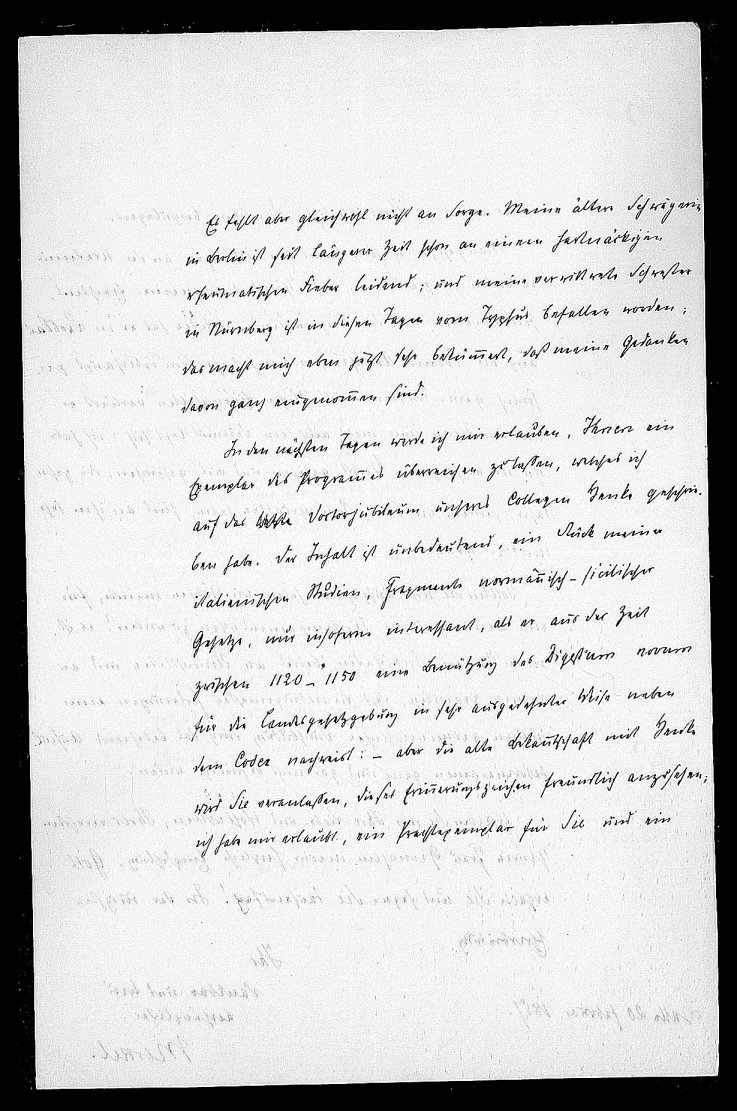 Es fehlt aber gleichwohl nicht an Sorge. Meine ältere Schwägerin
in Berlin ist seit längerer Zeit schon an einem hartnäckigen
rheumatischen Fieber leidend; und meine verwittwete Schwester
in Nürnberg ist in diesen Tagen vom Typhus befallen worden;
das macht mich eben jetzt sehr bekümmert, daß meine Gedanken
davon ganz eingenommen sind.
In den nächsten Tagen werde ich mir erlauben, Ihnen ein
Exemplar des Programmes überreichen zu lassen, welches ich
auf das Doctorjubiläum unseres Collegen Henke geschrie-
ben habe. Der Inhalt ist unbedeutend, ein Stück meiner
italienischen Studien, Fragmente normännisch-sicilischer
Gesetze, nur insoferne interessant, als er aus der Zeit
zwischen 1120–1150 eine Benützung des Digestum novum
für die Landesgesetzgebung in sehr ausgedehnter Weise neben
dem Codex nachweist: – aber die alte Bekanntschaft mit Henke
wird Sie veranlassen, dieses Erinnerungszeichen freundlich anzusehen;
ich habe mir erlaubt, ein Prachtexemplar für Sie und ein